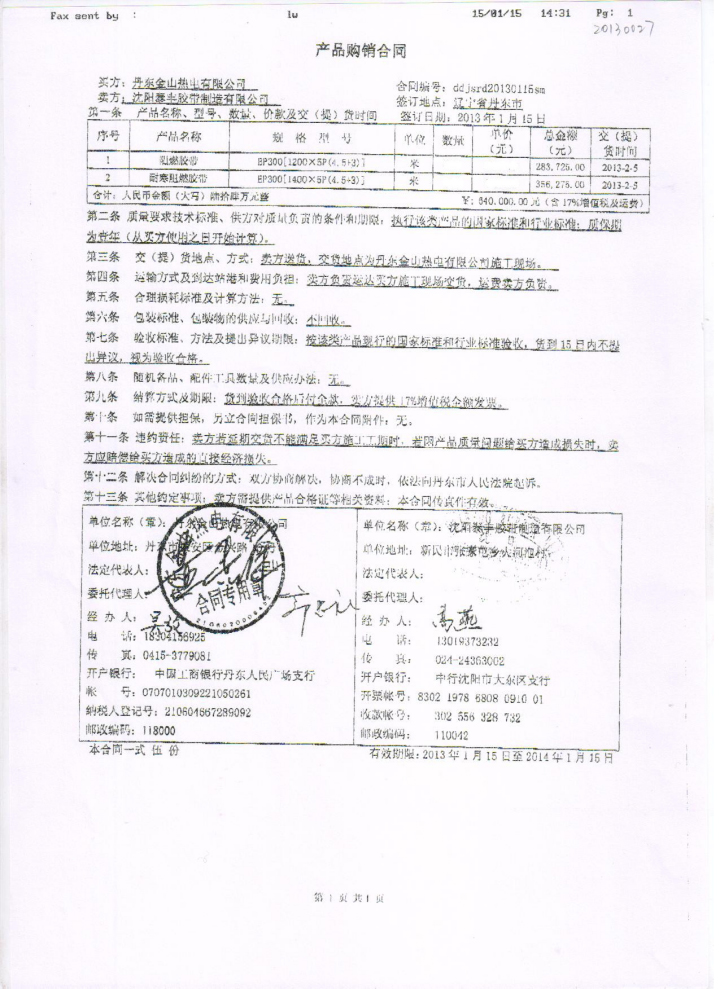 Fax sent by : lw 15/01/15 14:31 Pg: 1
20130027
产品购销合同
买方：丹东金山热电有限公司 合同编号：ddjsrd20130115sm
卖方：沈阳 胶带制造有限公司 签订地点：辽宁省丹东市
第一条 产品名称、型号、数量、价款及交（提）货时间 签订日期：2013年1月15日
序号 产品名称 规格型号 单位 数量 单价（元） 总金额（元） 交（提）货时间
1 阻燃胶带 EP300[1200×5P(4.5+3)] 米 283,725.00 2013-2-5
2 耐寒阻燃胶带 EP300[1400×5P(4.5+3)] 米 356,275.00 2013-2-5
合计：人民币金额（大写）陆拾肆万元整 ￥：640,000.00元（含17%增值税及运费）
第二条 质量要求技术标准、供方对质量负责的条件和期限：执行该类产品的国家标准和行业标准；质保期
为壹年（从买方使用之日开始计算）。
第三条 交（提）货地点、方式：卖方送货，交货地点为丹东金山热电有限公司施工现场。
第四条 运输方式及到达站港和费用负担：卖方负责运达买方施工现场交货，运费卖方负责。
第五条 合理损耗标准及计算方法：无。
第六条 包装标准、包装物的供应与回收：不回收。
第七条 验收标准、方法及提出异议期限：按该类产品现行的国家标准和行业标准验收，货到15日内不提
出异议，视为验收合格。
第八条 随机备品、配件工具数量及供应办法：无。
第九条 结算方式及期限：货到验收合格后付全款，卖方提供17%增值税全额发票。
第十条 如需提供担保，另立合同担保书，作为本合同附件：无。
第十一条 违约责任：卖方若延期交货不能满足买方施工工期时，若因产品质量问题给买方造成损失时，卖
方应赔偿给买方造成的直接经济损失。
第十二条 解决合同纠纷的方式：双方协商解决，协商不成时，依法向丹东市人民法院起诉。
第十三条 其他约定事项：卖方需提供产品合格证等相关资料；本合同传真件有效。
单位名称（章）：丹东金山热电有限公司
单位地址：丹东市振安区
法定代表人：
委托代理人：
合同专用章
经办人：
电 话：18204156925
传 真：0415-3779081
开户银行： 中国工商银行丹东人民广场支行
帐 号：0707010309221050261
纳税人登记号：210604667289092
邮政编码：118000
单位名称（章）：沈阳 胶带制造有限公司
单位地址：新民市
法定代表人：
委托代理人：
经办人：高燕
电 话：13019373232
传 真：024-24353002
开户银行：中行沈阳市大东区支行
开票帐号：8302 1978 6808 0910 01
收款帐号：302 556 328 732
邮政编码：110042
本合同一式 伍 份 有效期限：2013年1月15日至2014年1月15日
第1页 共1页